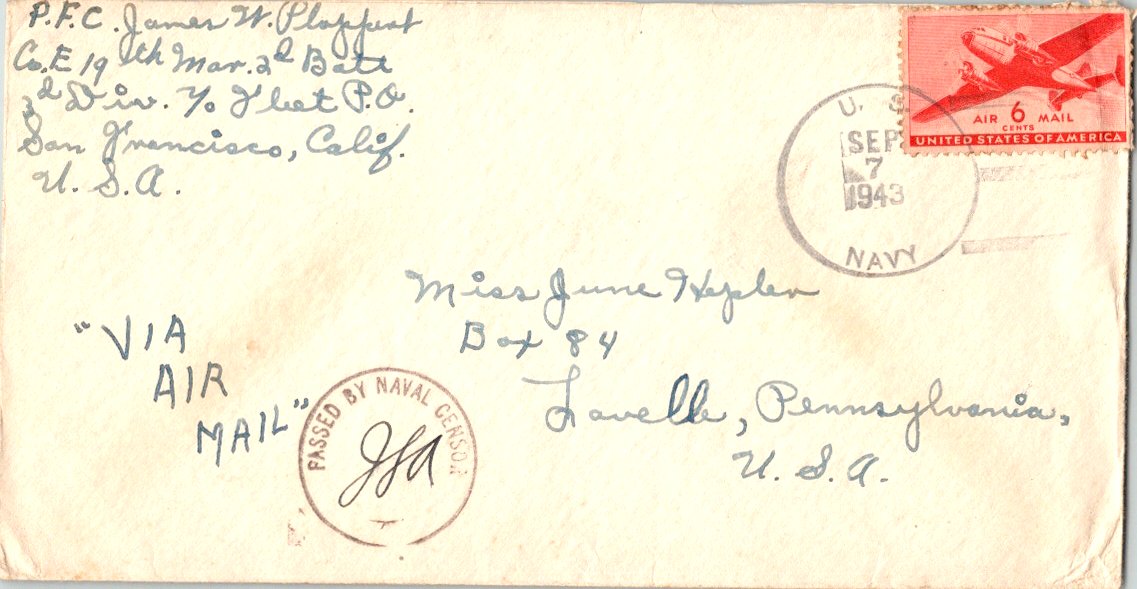 P.F.C. James W.
Co. E 19th Mar. 2d Batt
3d Div. % Fleet P.O.
San Francisco, Calif.
U. S. A.
AIR 6 MAIL
CENTS
UNITED STATES OF AMERICA
U. S.
SEP
7
1943
NAVY
Miss June Hepler
Box 84
Lavelle, Pennsylvania,
U. S. A.
"VIA
AIR
MAIL"
PASSED BY NAVAL CENSOR